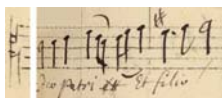 Deo Patri # Et filio